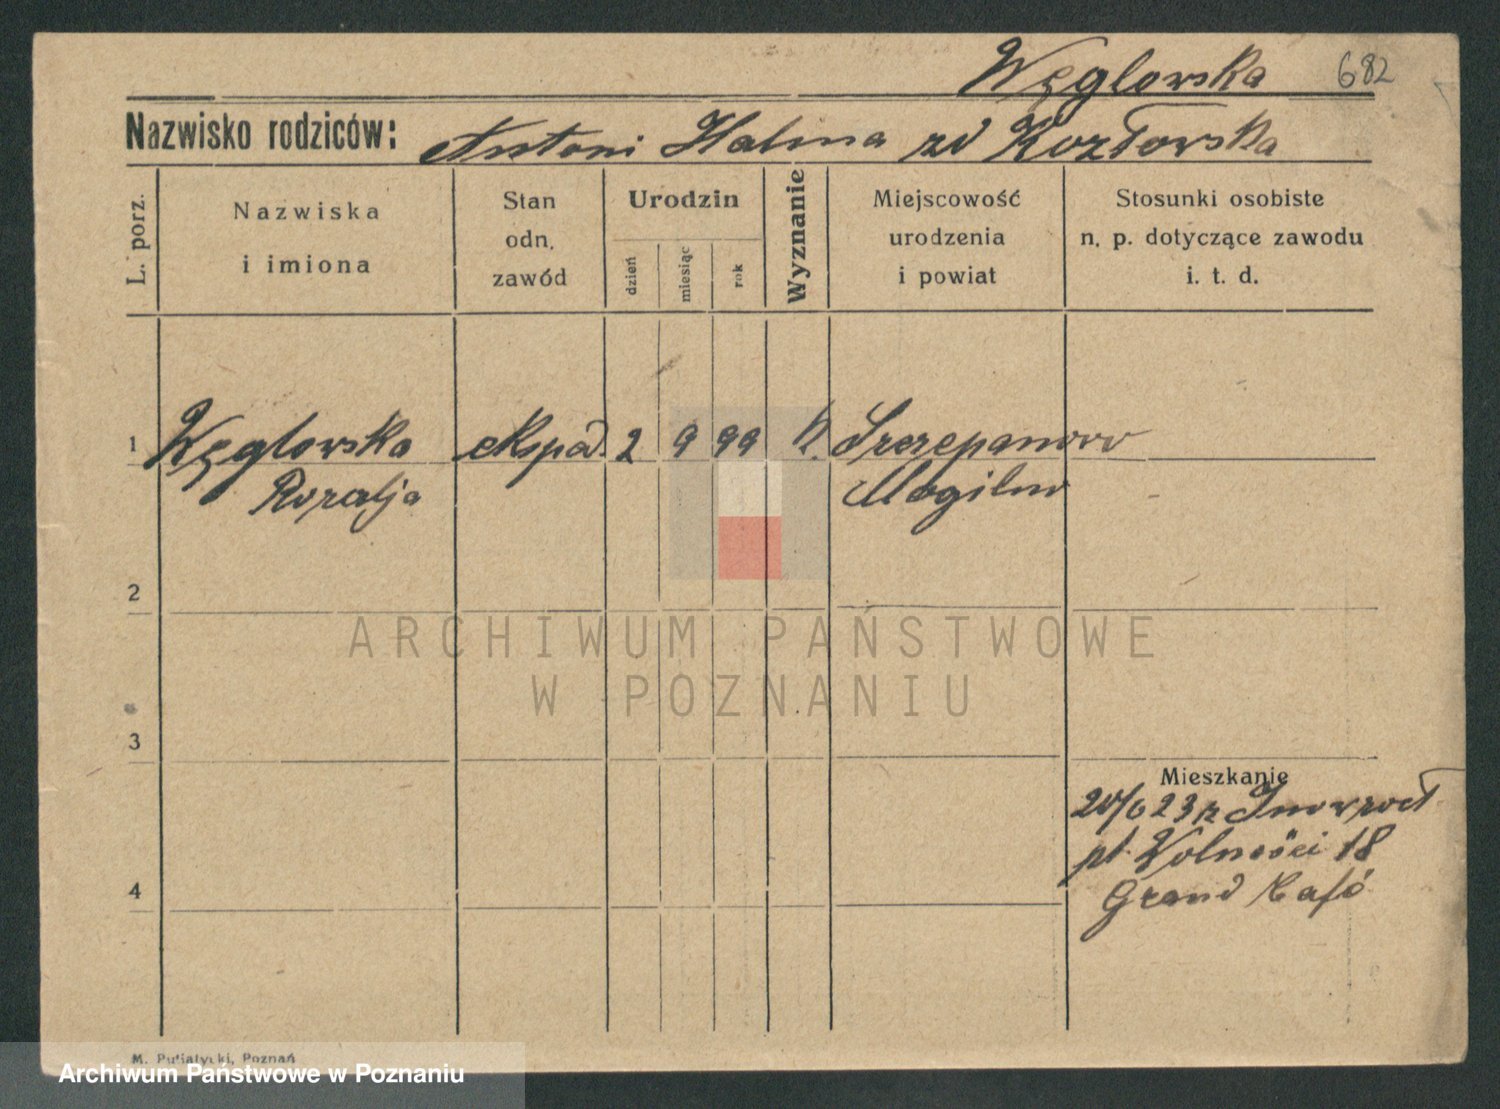 Węglowska 682
Nazwisko rodziców: Antoni Halina zd Kozłowska
L. porz.
Nazwiska
i imiona
Stan
odn.
zawód
Urodzin
dzień
miesiąc
rok
Wyznanie
Miejscowość
urodzenia
i powiat
Stosunki osobiste
n. p. dotyczące zawodu
i. t. d.
1 Węglowska eksped. 2 9 99 k. Szczepanowo
Rozalja Mogilno
2
ARCHIWUM PAŃSTWOWE
W POZNANIU
3
Mieszkanie
20/6 23 z Inowrocł
pl. Wolności 18
4
Grand Café
M. Putiatycki, Poznań
Archiwum Państwowe w Poznaniu